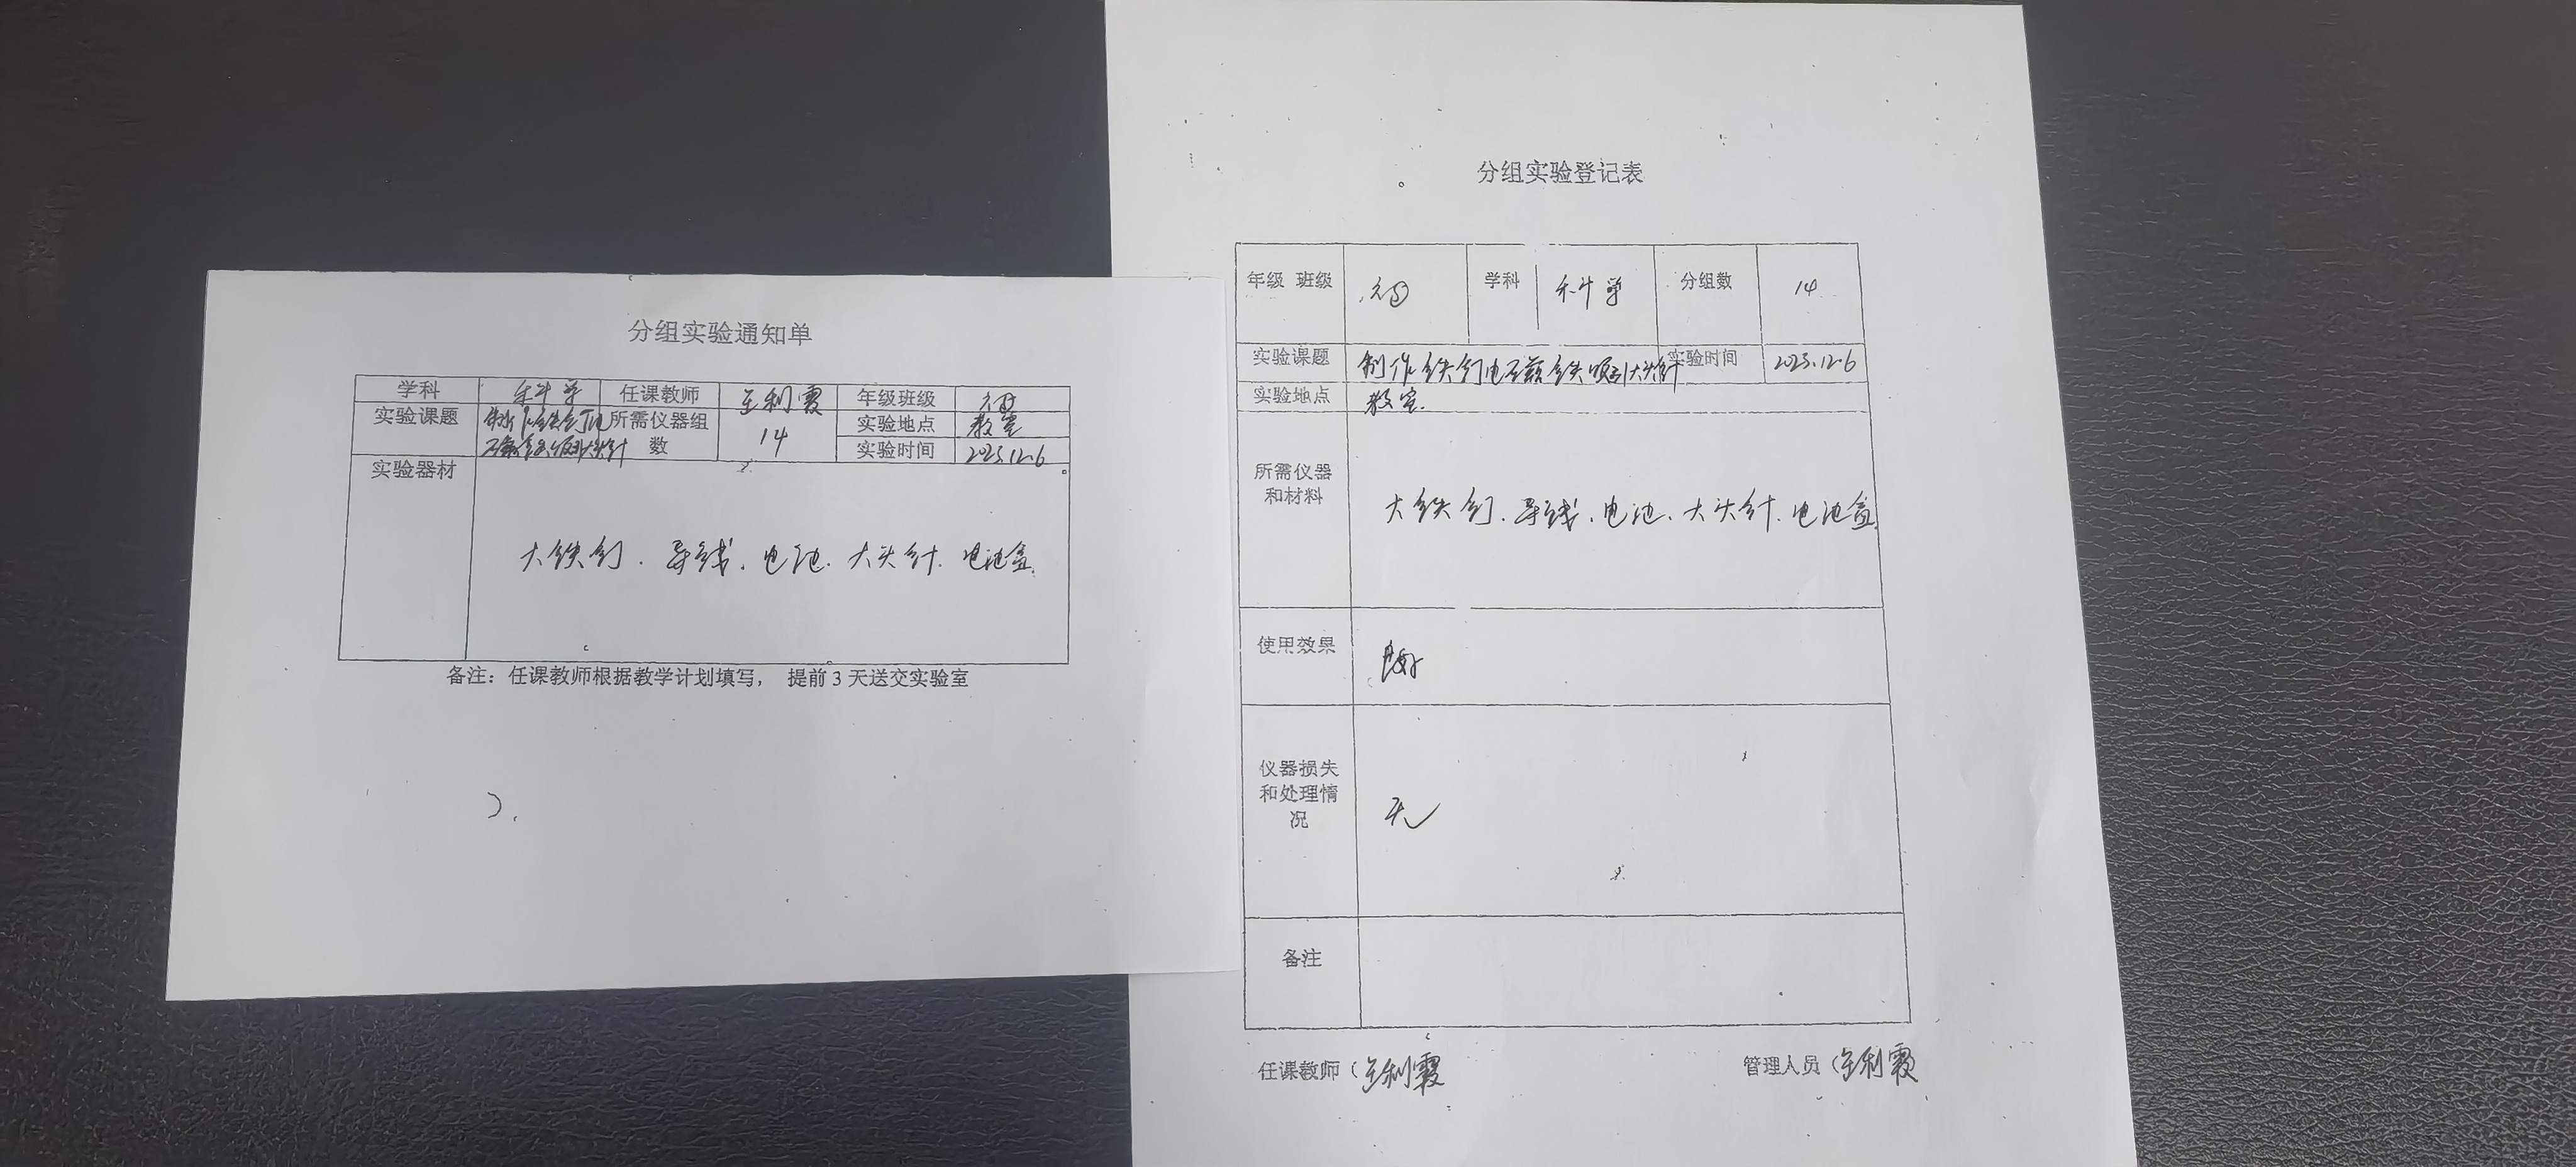 分组实验通知单
学科 科学 任课教师 王利霞 年级班级
实验课题 制作铁钉电磁铁吸引大头针 所需仪器组数 14 实验地点 教室
实验时间 2023.12.6
实验器材
大铁钉.导线.电池.大头针.电池盒.
备注：任课教师根据教学计划填写， 提前3天送交实验室
分组实验登记表
年级 班级 学科 科学 分组数 14
实验课题 制作铁钉电磁铁吸引大头针 实验时间 2023.12.6
实验地点 教室.
所需仪器
和材料
大铁钉.导线.电池.大头针.电池盒.
使用效果 良好
仪器损失
和处理情
况
无
备注
任课教师（王利霞 管理人员（王利霞